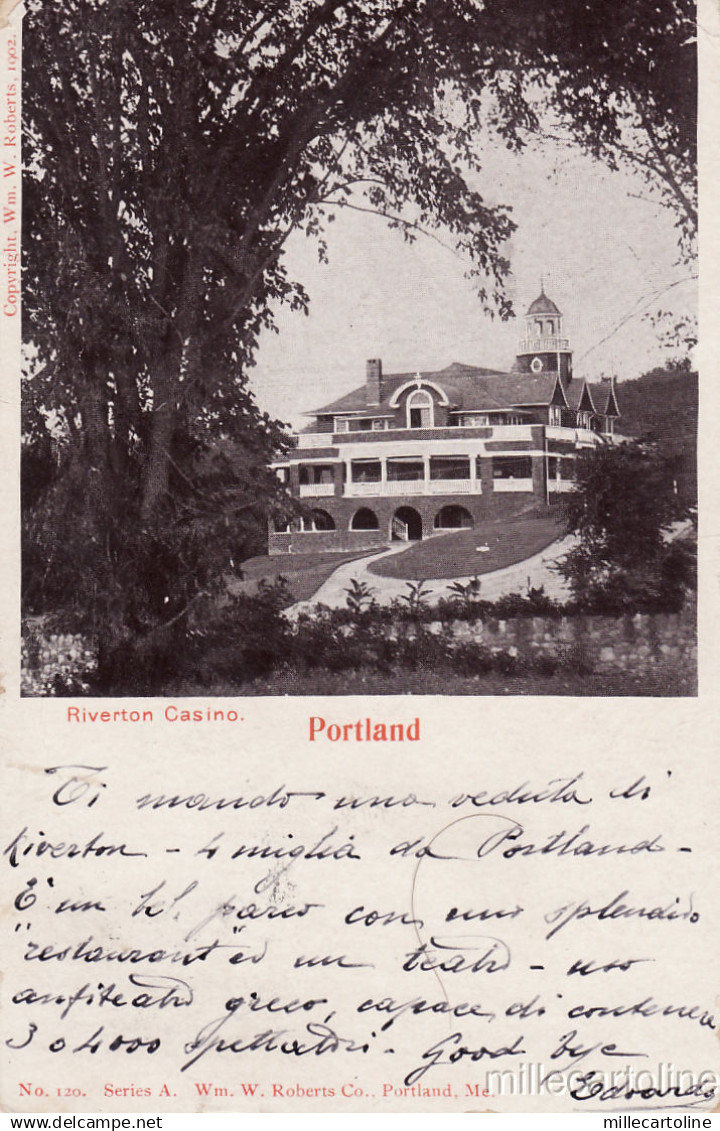 Copyright, Wm. W. Roberts, 1902.
Riverton Casino.
Portland
Ti mando una veduta di
Riverton - 4 miglia da Portland -
E' un bel parco con uno splendido
"restaurant" ed un teatro - uso
anfiteatro greco, capace di contenere
3 o 4000 spettatori - Good bye
Edoardo
No. 120. Series A. Wm. W. Roberts Co., Portland, Me.
millecartoline
millecartoline